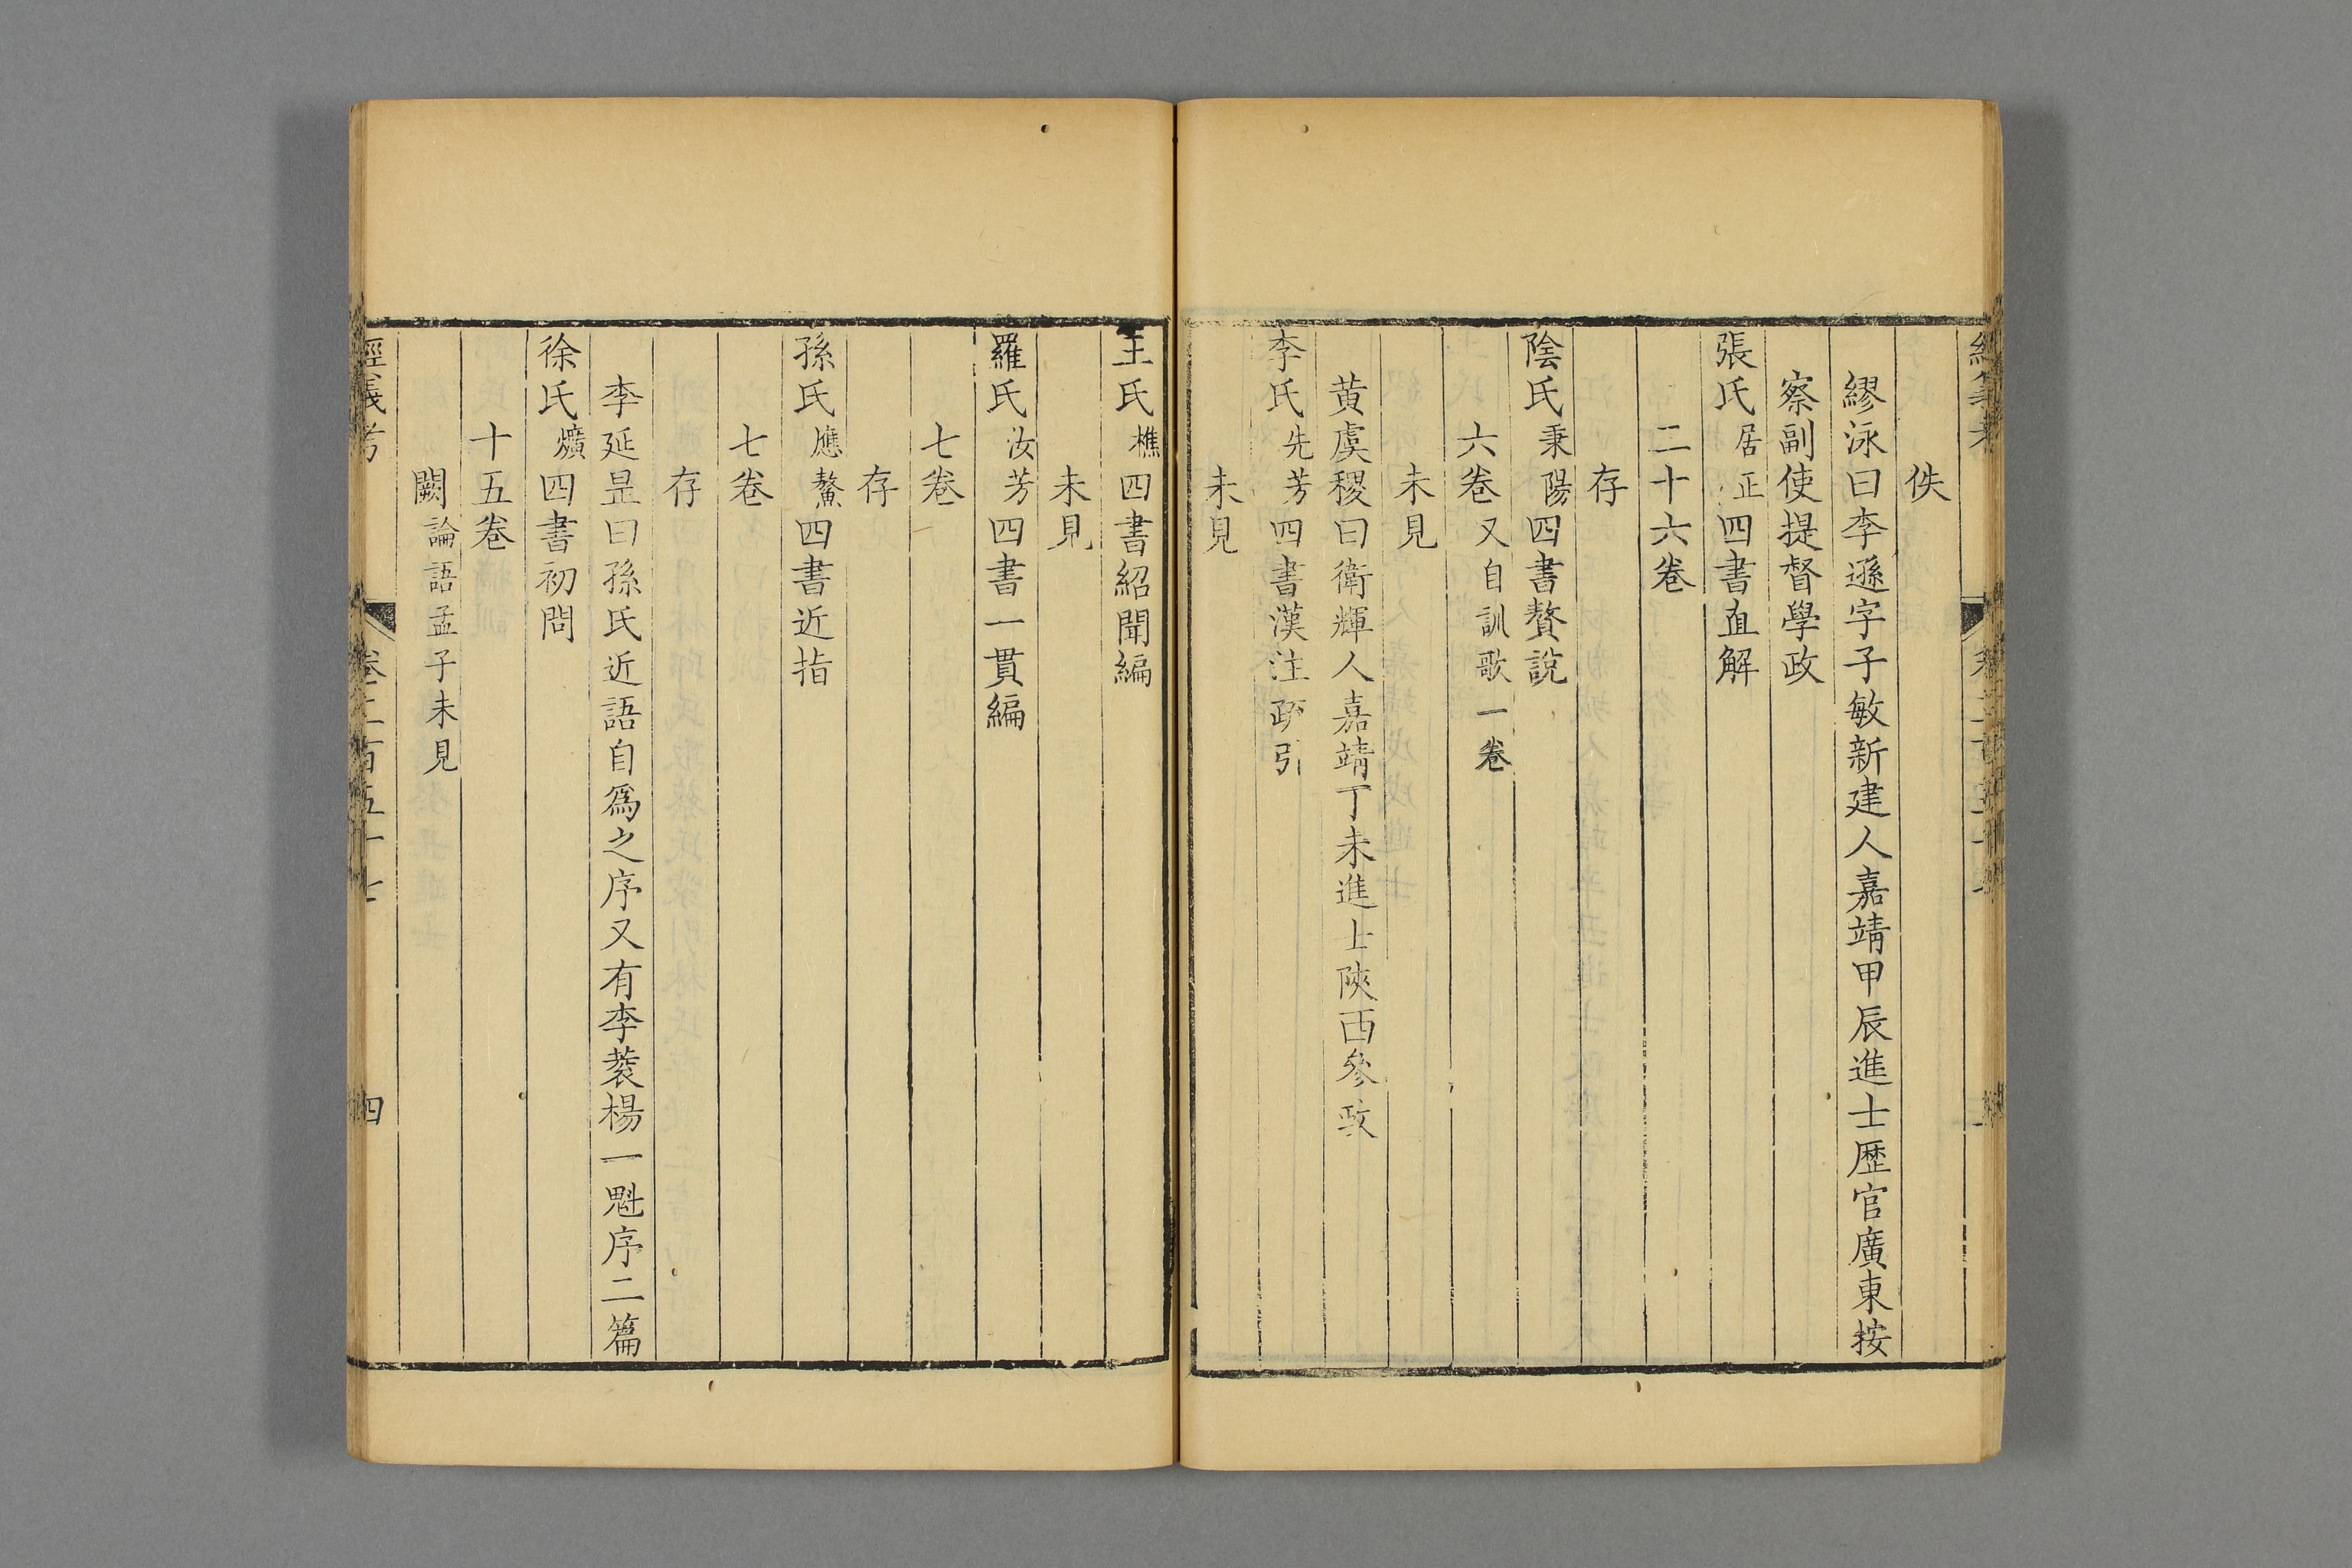 佚
繆泳曰李遜字子敏新建人嘉靖甲辰進士歷官廣東按
察副使提督學政
張氏居正四書直解
二十六卷
存
陰氏秉陽四書贅說
六卷又自訓歌一卷
未見
黃虞稷曰衛輝人嘉靖丁未進士陝西參政
李氏先芳四書漢注疏引
未見
王氏樵四書紹聞編
未見
羅氏汝芳四書一貫編
七卷
存
孫氏應鰲四書近指
七卷
存
李延昰曰孫氏近語自爲之序又有李蓘楊一魁序二篇
徐氏爌四書初問
十五卷
闕論語孟子未見
經義考 卷二百五十七 四